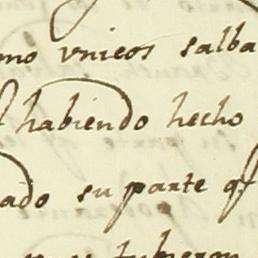 mo vnicos salba
habiendo hecho
ado su parte q
tubieron